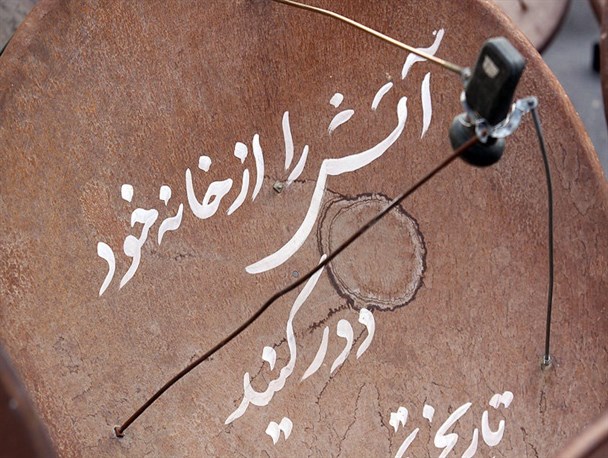 آتش را از خانه خود
دور کنید
تاریخ